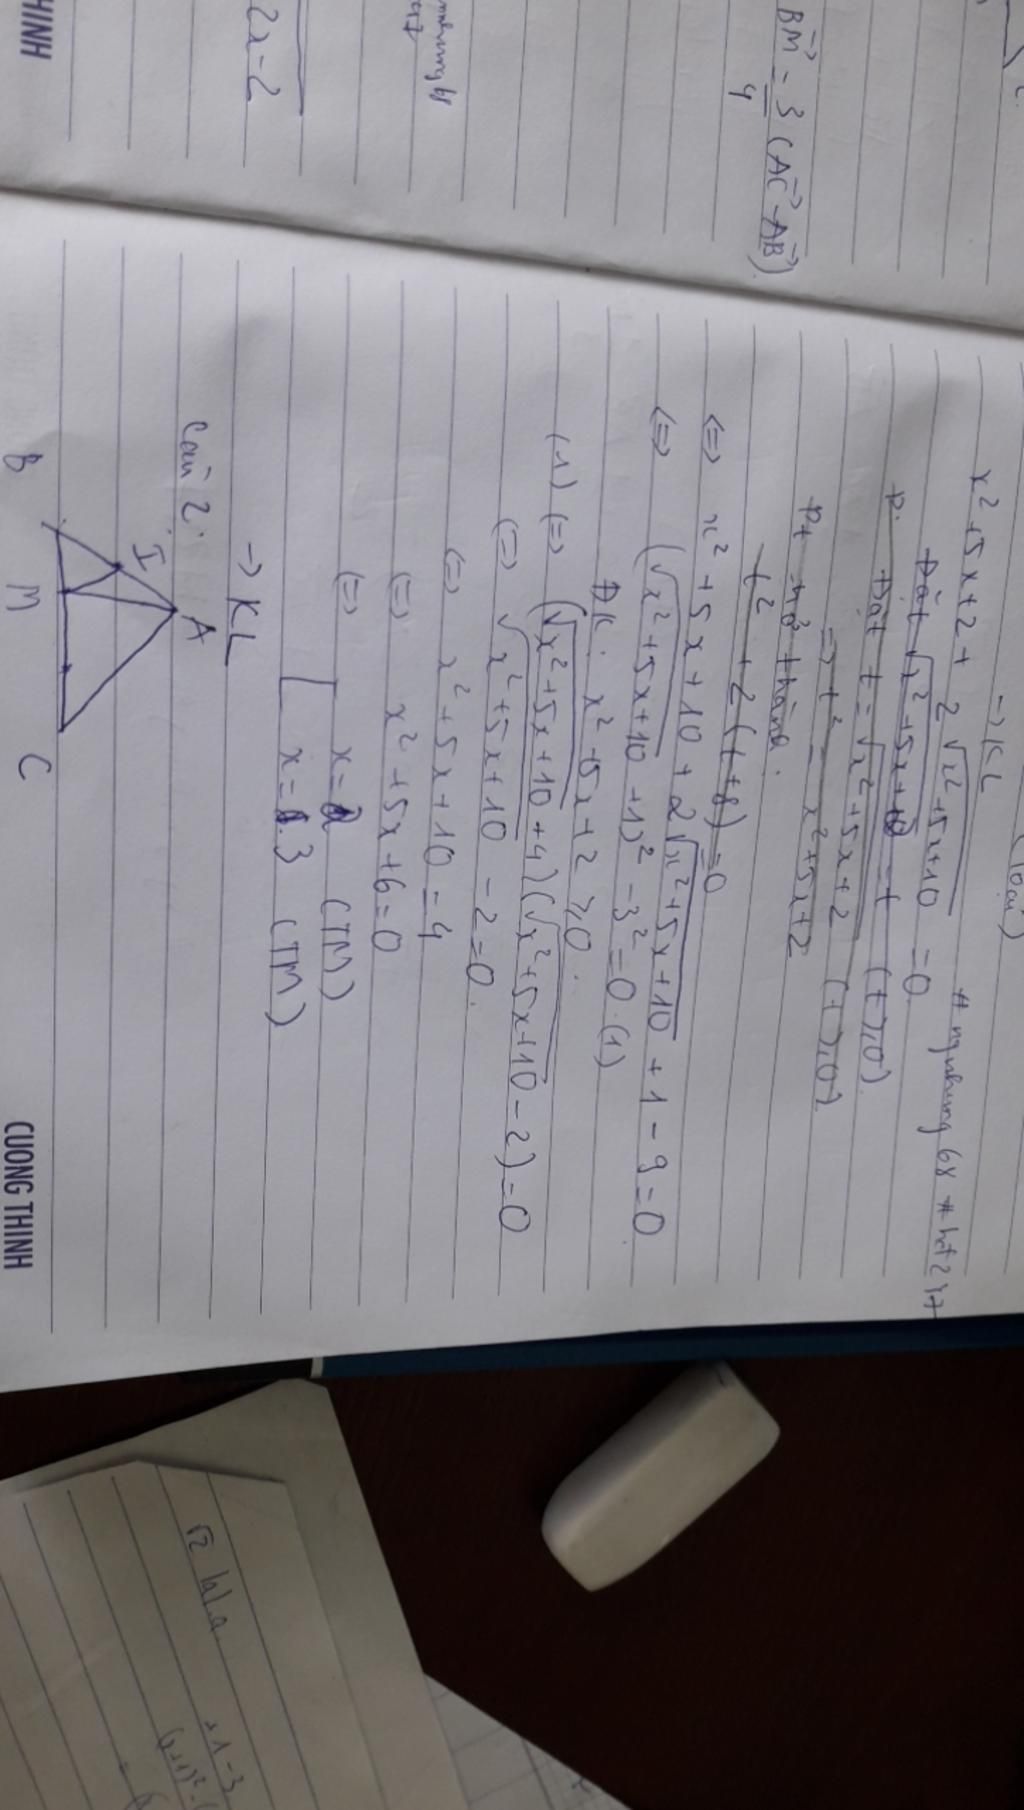 BM = 3/4 (AC - AB)
2x-2
THINH
→ KL
x² + 5x + 2 + 2√x² + 5x + 10 = 0
Đặt √x² + 5x + 10 = t (t ≥ 0)
Đặt t = √x² + 5x + 2 (t ≥ 0)
=> t² = x² + 5x + 2
Pt trở thành:
t² + 2(t+8) = 0
<=> x² + 5x + 10 + 2√x² + 5x + 10 + 1 - 9 = 0
<=> (√x² + 5x + 10 + 1)² - 3² = 0. (1)
ĐK: x² + 5x + 2 ≥ 0.
(1) <=> (√x² + 5x + 10 + 4)(√x² + 5x + 10 - 2) = 0
<=> √x² + 5x + 10 - 2 = 0.
<=> x² + 5x + 10 = 4
<=> x² + 5x + 6 = 0
<=> x = 2 (TM)
x = 3 (TM)
→ KL
Câu 2.
A
I
B M C
CUONG THINH